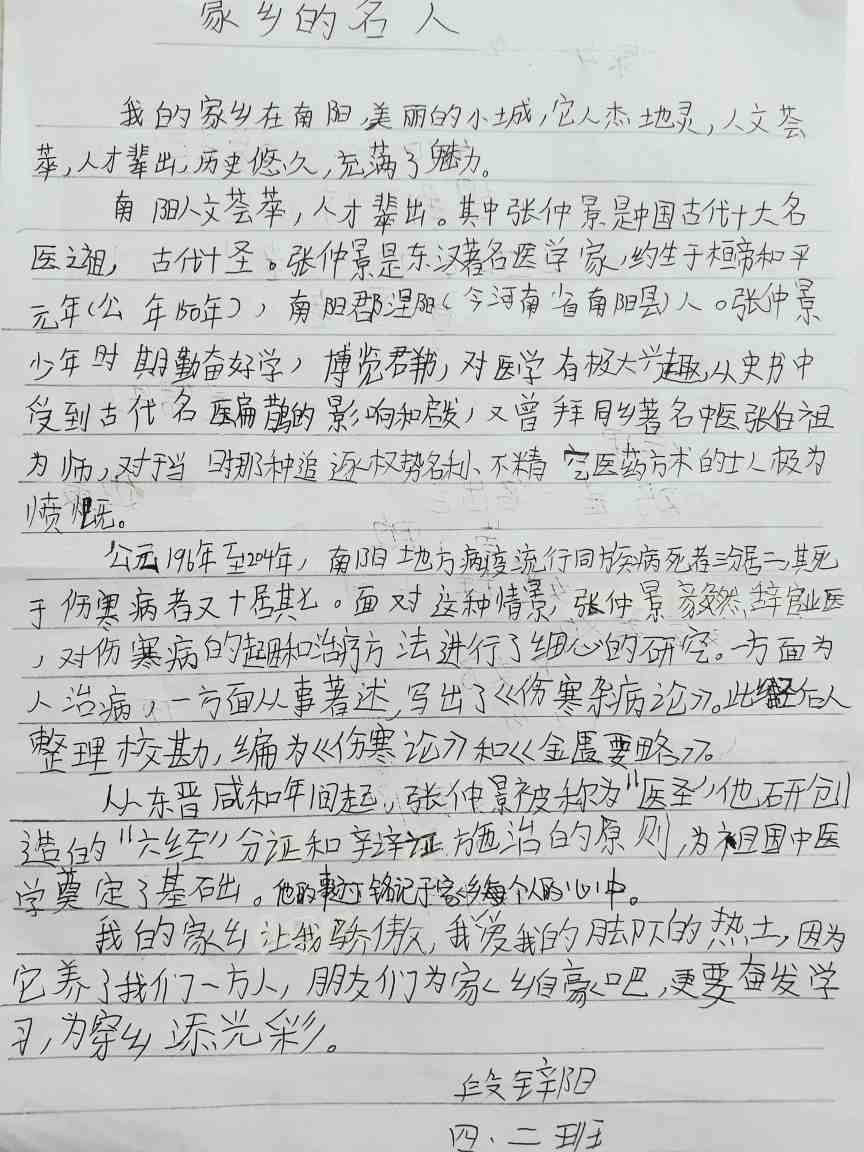 家乡的名人
我的家乡在南阳,美丽的小城,它人杰地灵,人文荟
萃,人才辈出,历史悠久,充满了魅力。
南阳人文荟萃,人才辈出。其中张仲景是中国古代十大名
医之祖,古代十圣。张仲景是东汉著名医学家,约生于桓帝和平
元年(公 年150年),南阳郡涅阳(今河南省南阳县)人。张仲景
少年时期勤奋好学,博览群书,对医学有极大兴趣,从史书中
受到古代名医扁鹊的影响和启发,又曾拜同乡著名中医张伯祖
为师,对于当时那种追逐权势名利、不精 医药方术的士人极为
愤慨。
公元196年至204年,南阳地方病疫流行同族病死者三分居二,其死
于伤寒病者又十居其七。面对这种情景,张仲景毅然辞官业医
,对伤寒病的起因和治疗方法进行了细心的研究。一方面为
人治病,一方面从事著述,写出了《伤寒杂病论》。此经后人
整理校勘,编为《伤寒论》和《金匮要略》。
从东晋咸和年间起,张仲景被称为"医圣",他研创
造的"六经"分证和辩证施治的原则,为祖国中医
学奠定了基础出。他的事迹铭记于家乡每个人的心中。
我的家乡让我骄傲,我爱我的脚下的热土,因为
它养了我们一方人,朋友们为家乡自豪吧,更要奋发学
习,为家乡添光彩。
段锌阳
四.二班